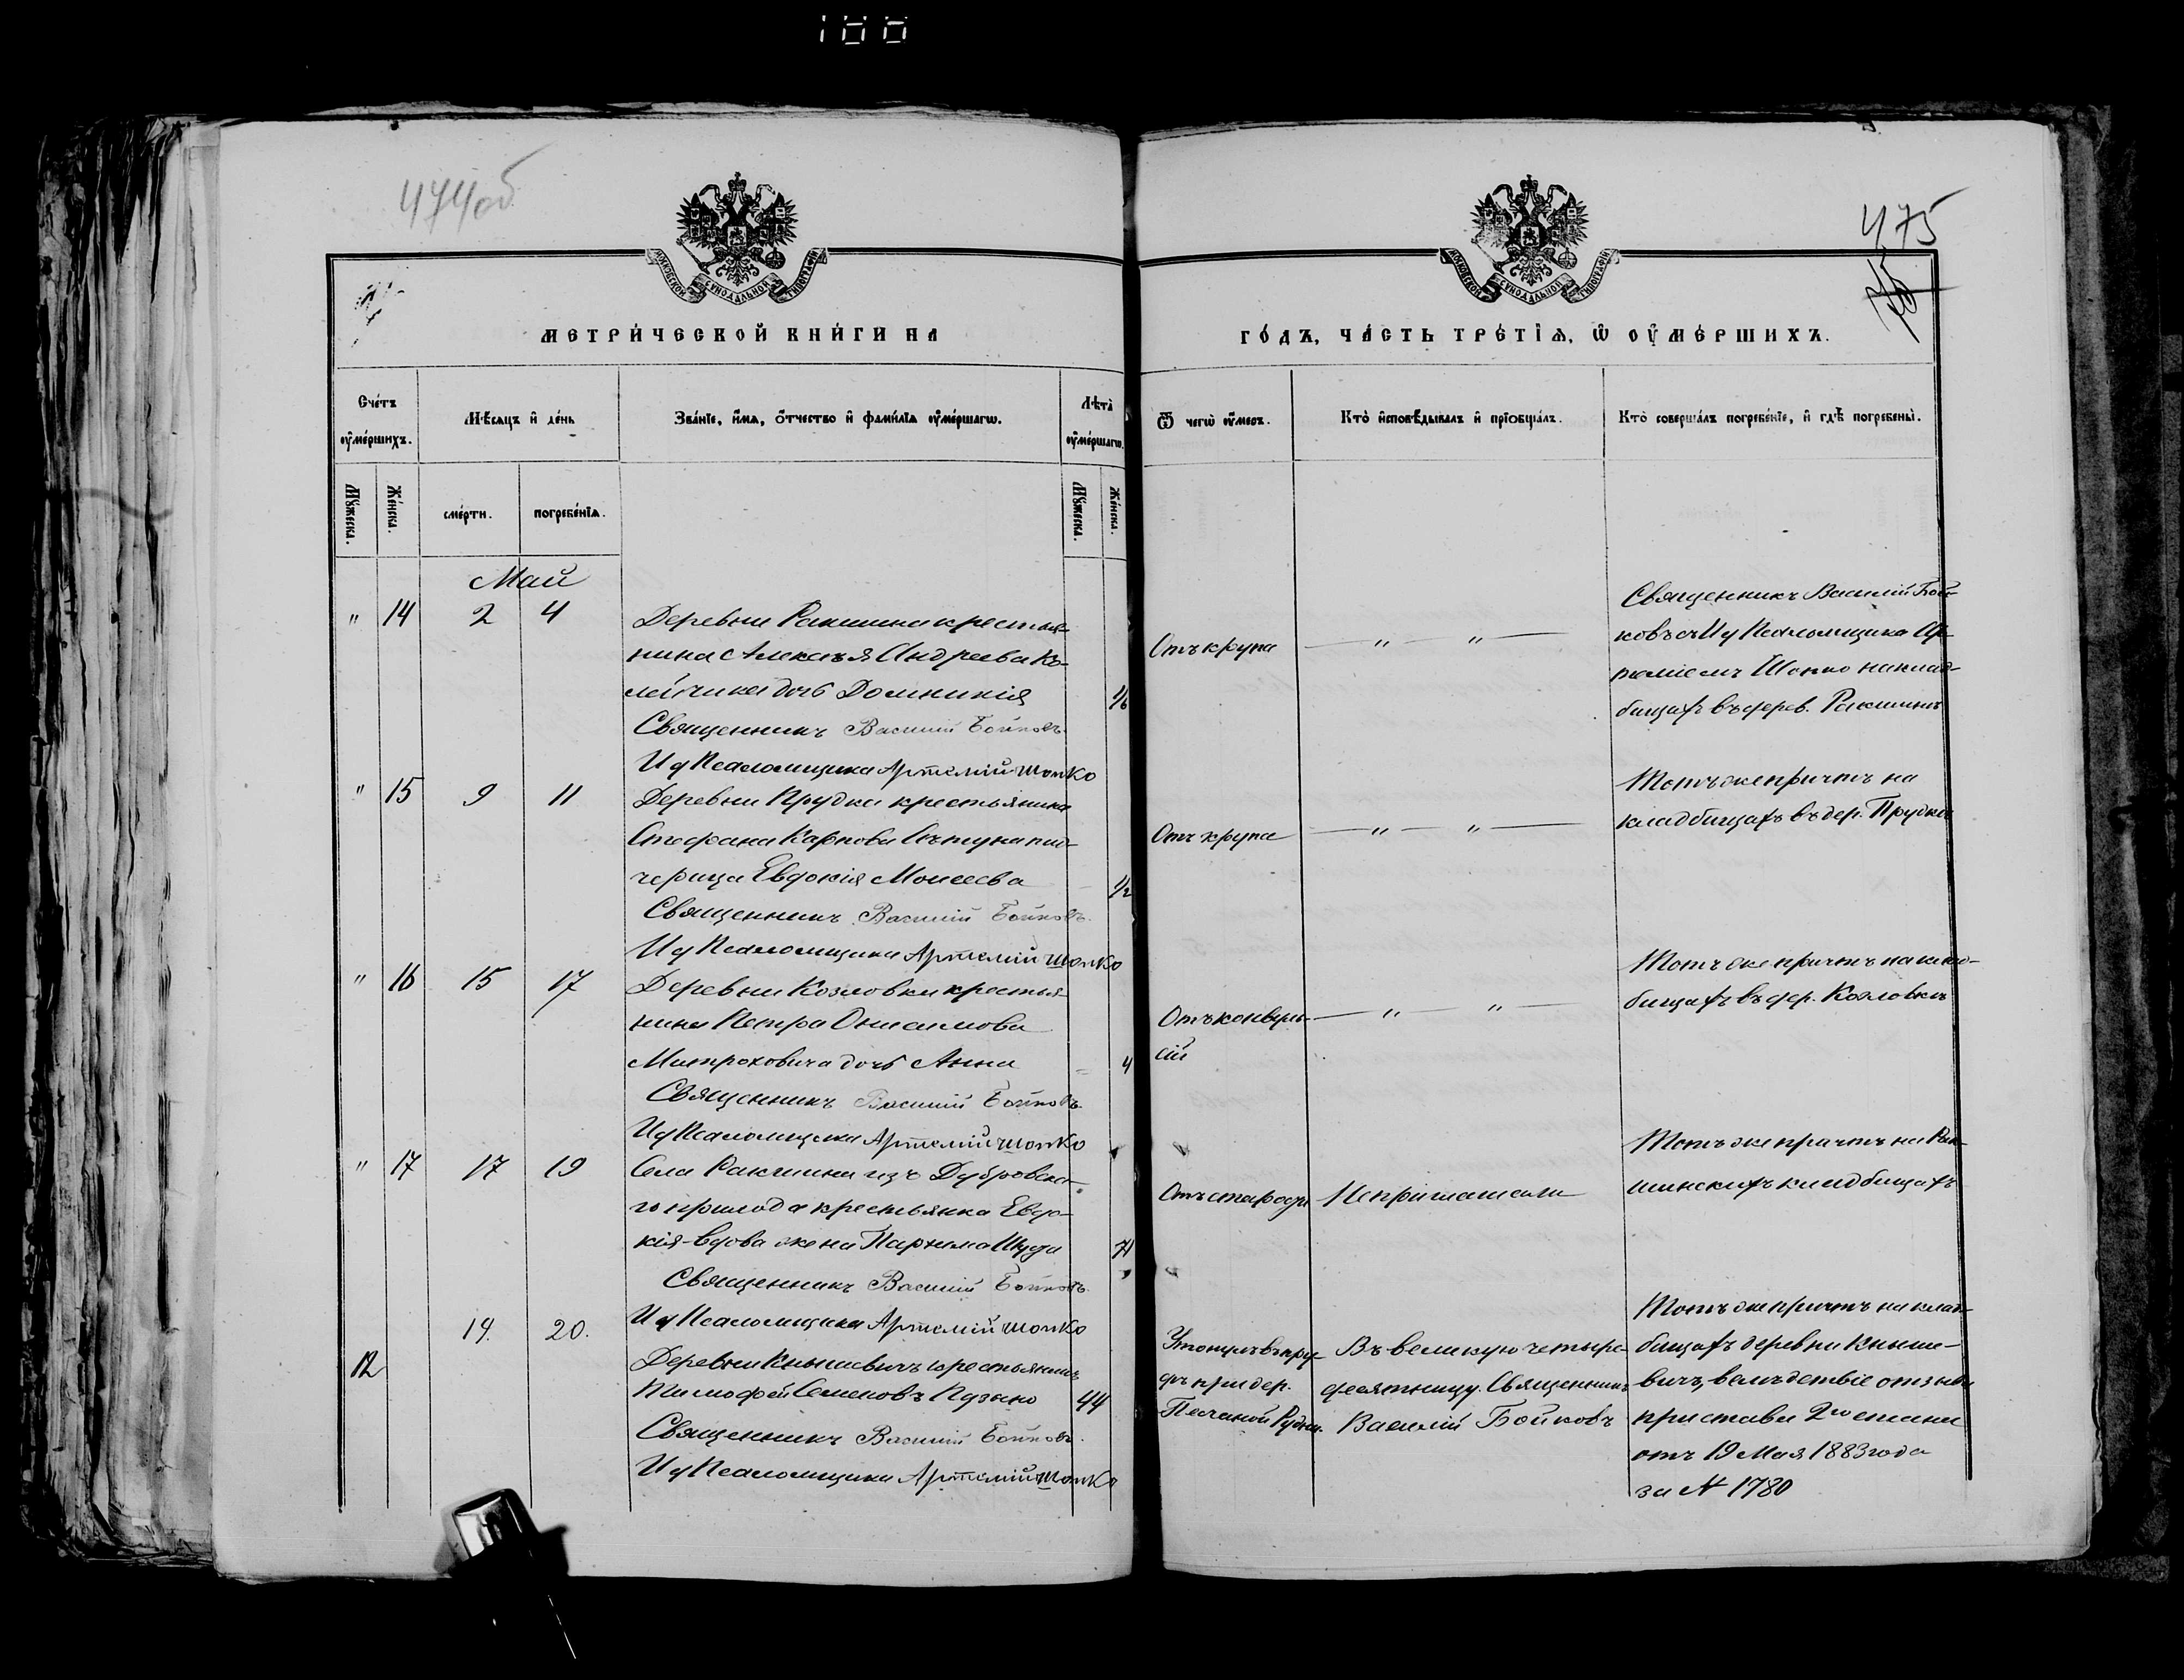 100
474об
475
МЕТРИ́ЧЕСКОЙ КНИ́ГИ НА
ГО́ДЪ, ЧА́СТЬ ТРЕ́ТІѦ, Ѡ҆ ОУ҆МЕ́РШИХЪ.
МОСКОВСКОЙ СѴНОДАЛЬНОЙ ТИПОГРАФІИ
МОСКОВСКОЙ СѴНОДАЛЬНОЙ ТИПОГРАФІИ
Сче́тъ оу҆ме́ршихъ.
Мѣ́сяцъ и҆ де́нь
Зва́нїе, и҆́мѧ, ѻ҆́тчество и҆ фами́лїѧ оу҆ме́ршагѡ.
Лѣ́та оу҆ме́ршагѡ.
Ѿ чегѡ̀ оу҆́меръ.
Кто̀ и҆сповѣ́дывалъ и҆ прїѡбща́лъ.
Кто̀ соверша́лъ погребе́нїе, и҆ гдѣ̀ погребены̀.
Мꙋ́жеска.
Же́нска.
сме́рти.
погребе́нїѧ.
Мꙋ́жеска.
Же́нска.
Май
" 14 2 4 Деревни Ракшина крестья-
нина Алексѣя Андреева Ко-
лейчика дочь Домникія 1/6
Священникъ Василій Бойковъ
И д Псаломщика Артемій Шопко
Отъ крупа — " — " —
Священникъ Василій Бой-
ковъ съ И д Псаломщика Ар-
теміемъ Шопко на клад-
бищахъ въ дерев. Ракшинѣ
" 15 9 11 Деревни Прудка крестьянина
Стефана Карпова пад-
черица Евдокія Моисеева 1/2
Священникъ Василій Бойковъ.
И д Псаломщика Артемій Шопко
Отъ крупа — " — " —
Тотъ же причтъ на
кладбищахъ въ дер. Прудкѣ
" 16 15 17 Деревни Козловки крестья-
нина Петра Онисимова
Митроховича дочь Анна 4
Священникъ Василій Бойковъ.
И д Псаломщика Артемій Шопко
Отъ конвуль-
сій — " — " —
Тотъ же причтъ на клад-
бищахъ въ дер. Козловкѣ
" 17 17 19 Села Ракшина изъ Дубровска-
го прихода крестьянка Евдо-
кія - вдова жена Пархима 71
Священникъ Василій Бойковъ.
И д Псаломщика Артемій Шопко
Отъ старости Не пріглашали
Тотъ же причтъ на Рак-
шинскихъ кладбищахъ
12 19. 20.
Деревни Кнышевичъ крестьянинъ
Тимофей Семеновъ Пузыно 44
Священникъ Василій Бойковъ.
И д Псаломщика Артемій Шопко
Утонулъ въ пру-
дѣ при дер.
Песчаной Рудни.
Въ великую четыре-
десятницу. Священникъ
Василій Бойковъ
Тотъ же причтъ на клад-
бищахъ деревни Кныше-
вичъ, вслѣдствіе отзыва
пристава 2го стана
отъ 19 Мая 1883 года
за № 1780